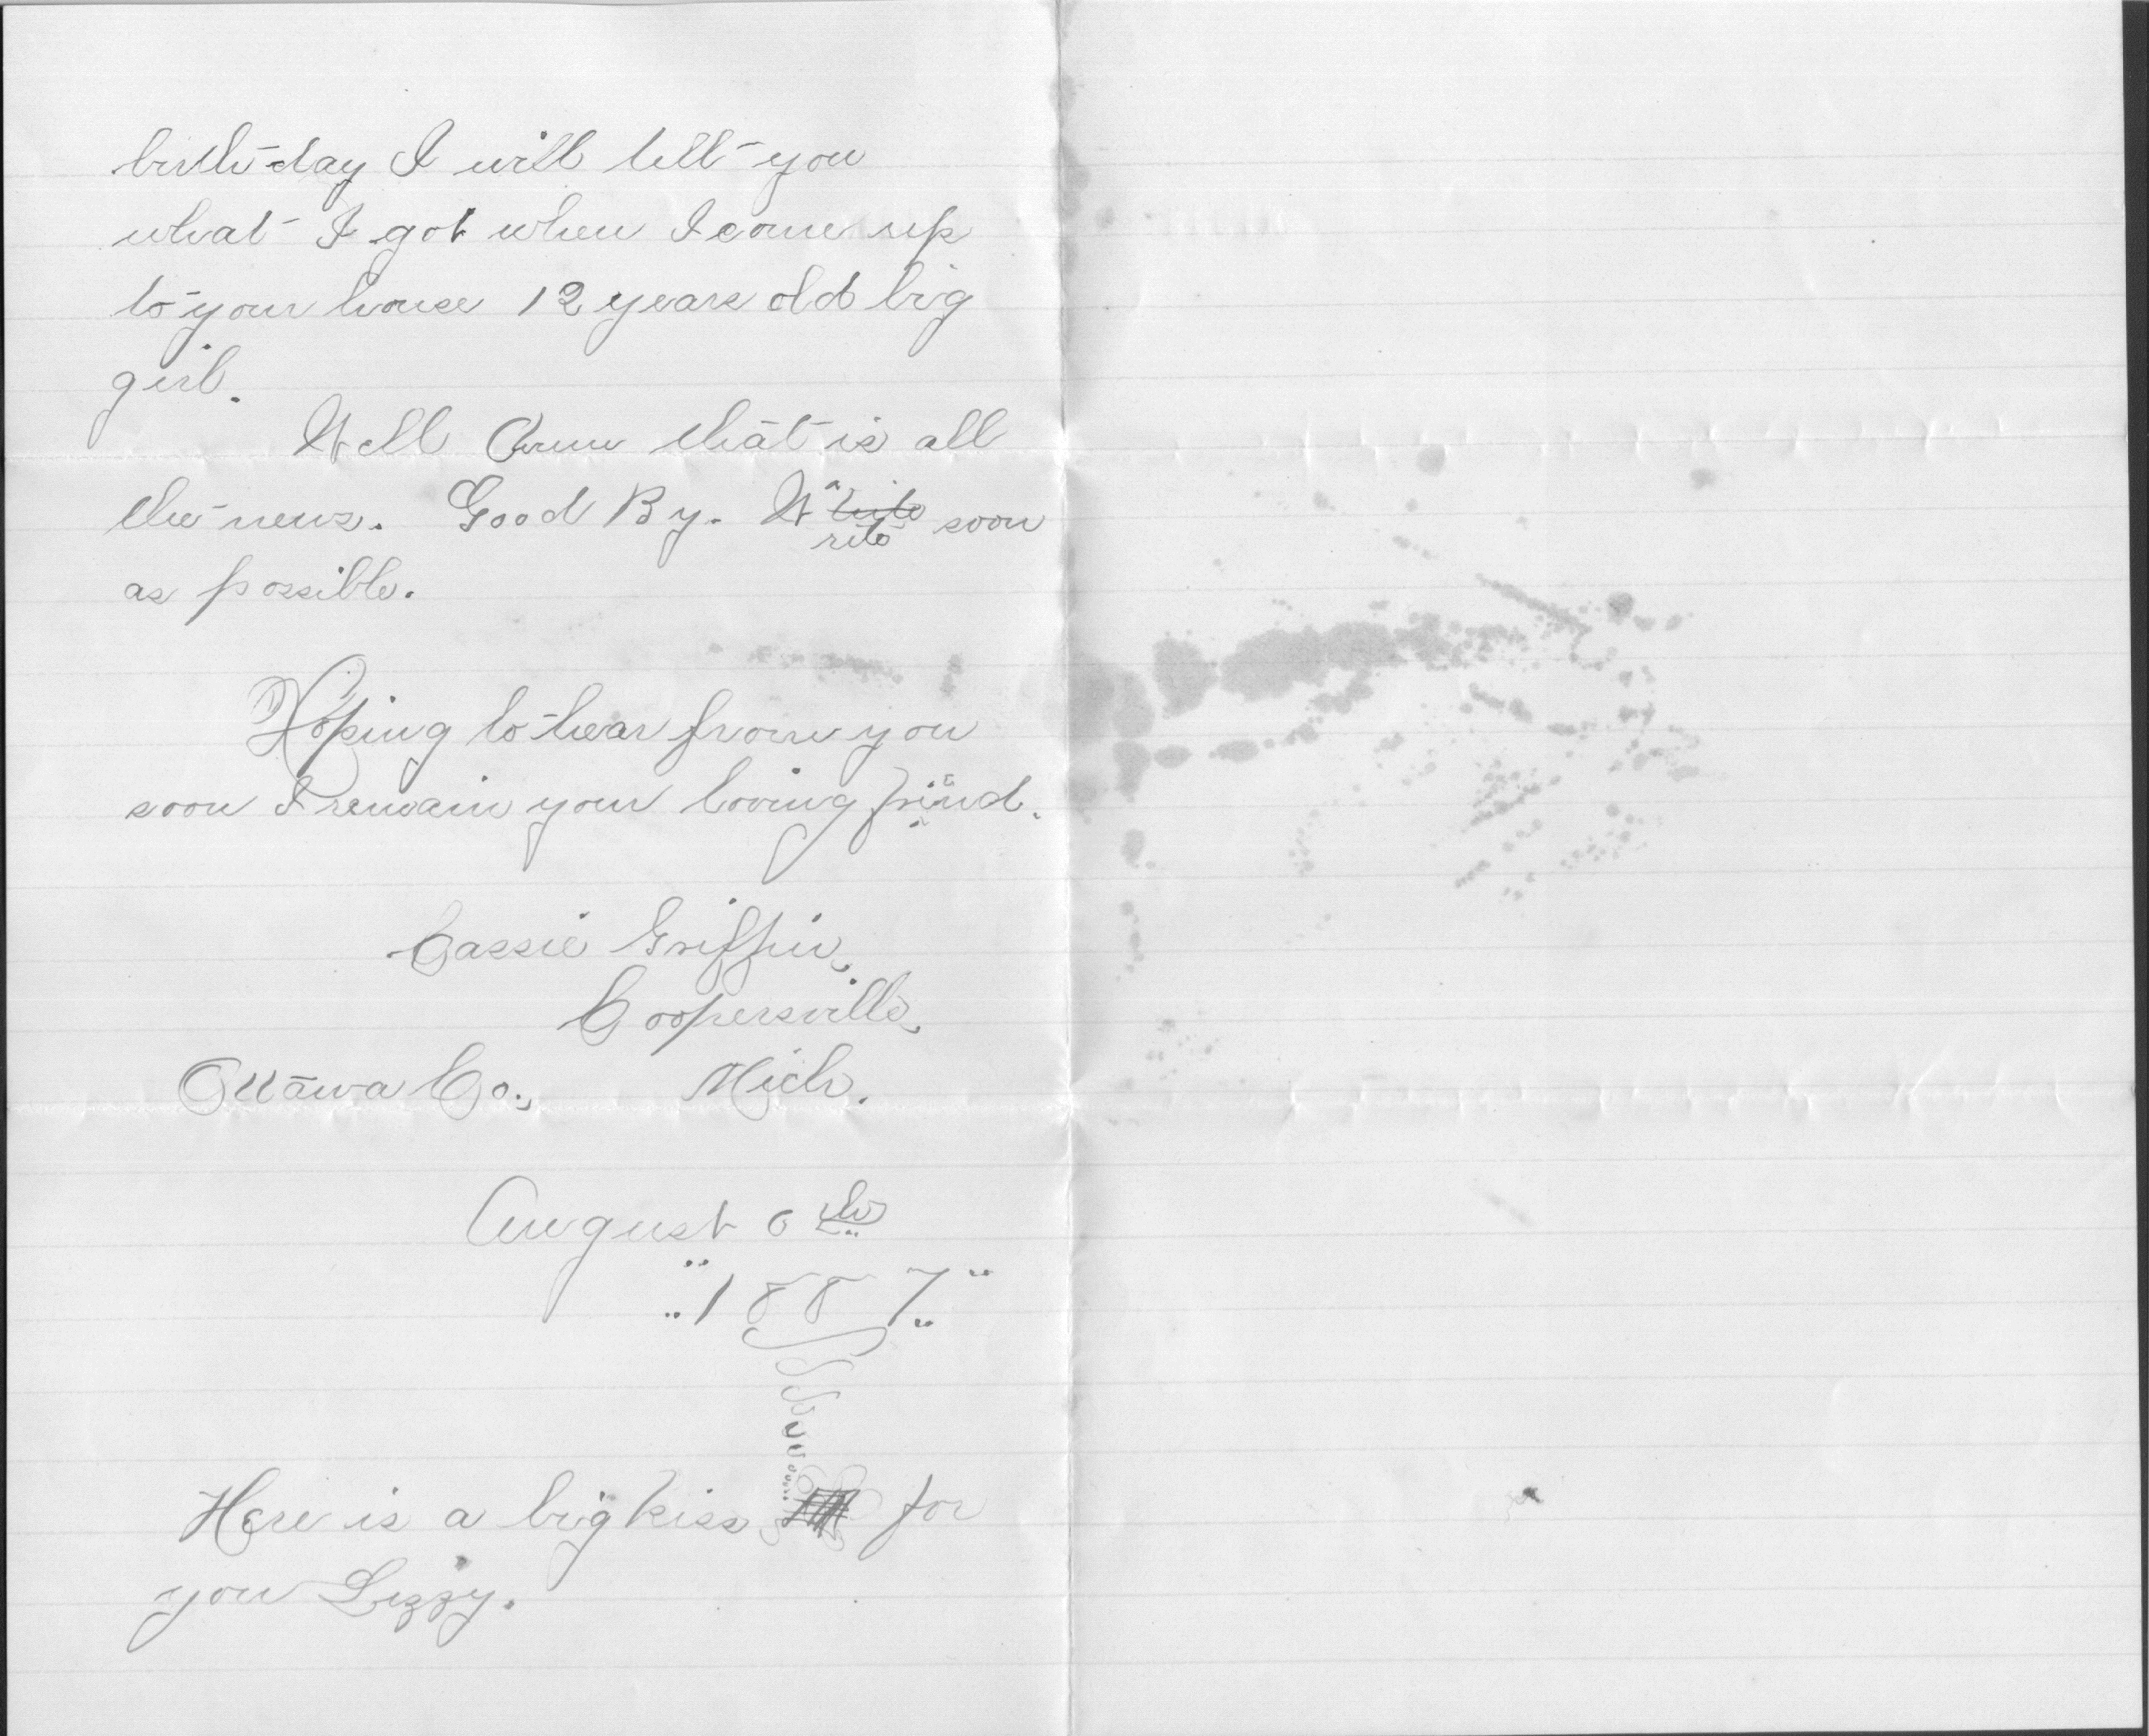 birth-day I will tell you
what I got when I come up
to your house 12 years old big
girl.
Well that is all
the news. Good By. W
rite soon
as possible.
Hoping to hear from you
soon I remain your loving friend.
Cassie Griffin,
Coopersville,
Ottawa Co., Mich.
August 6th
"1887"
Here is a big kiss for
you Lizzy.